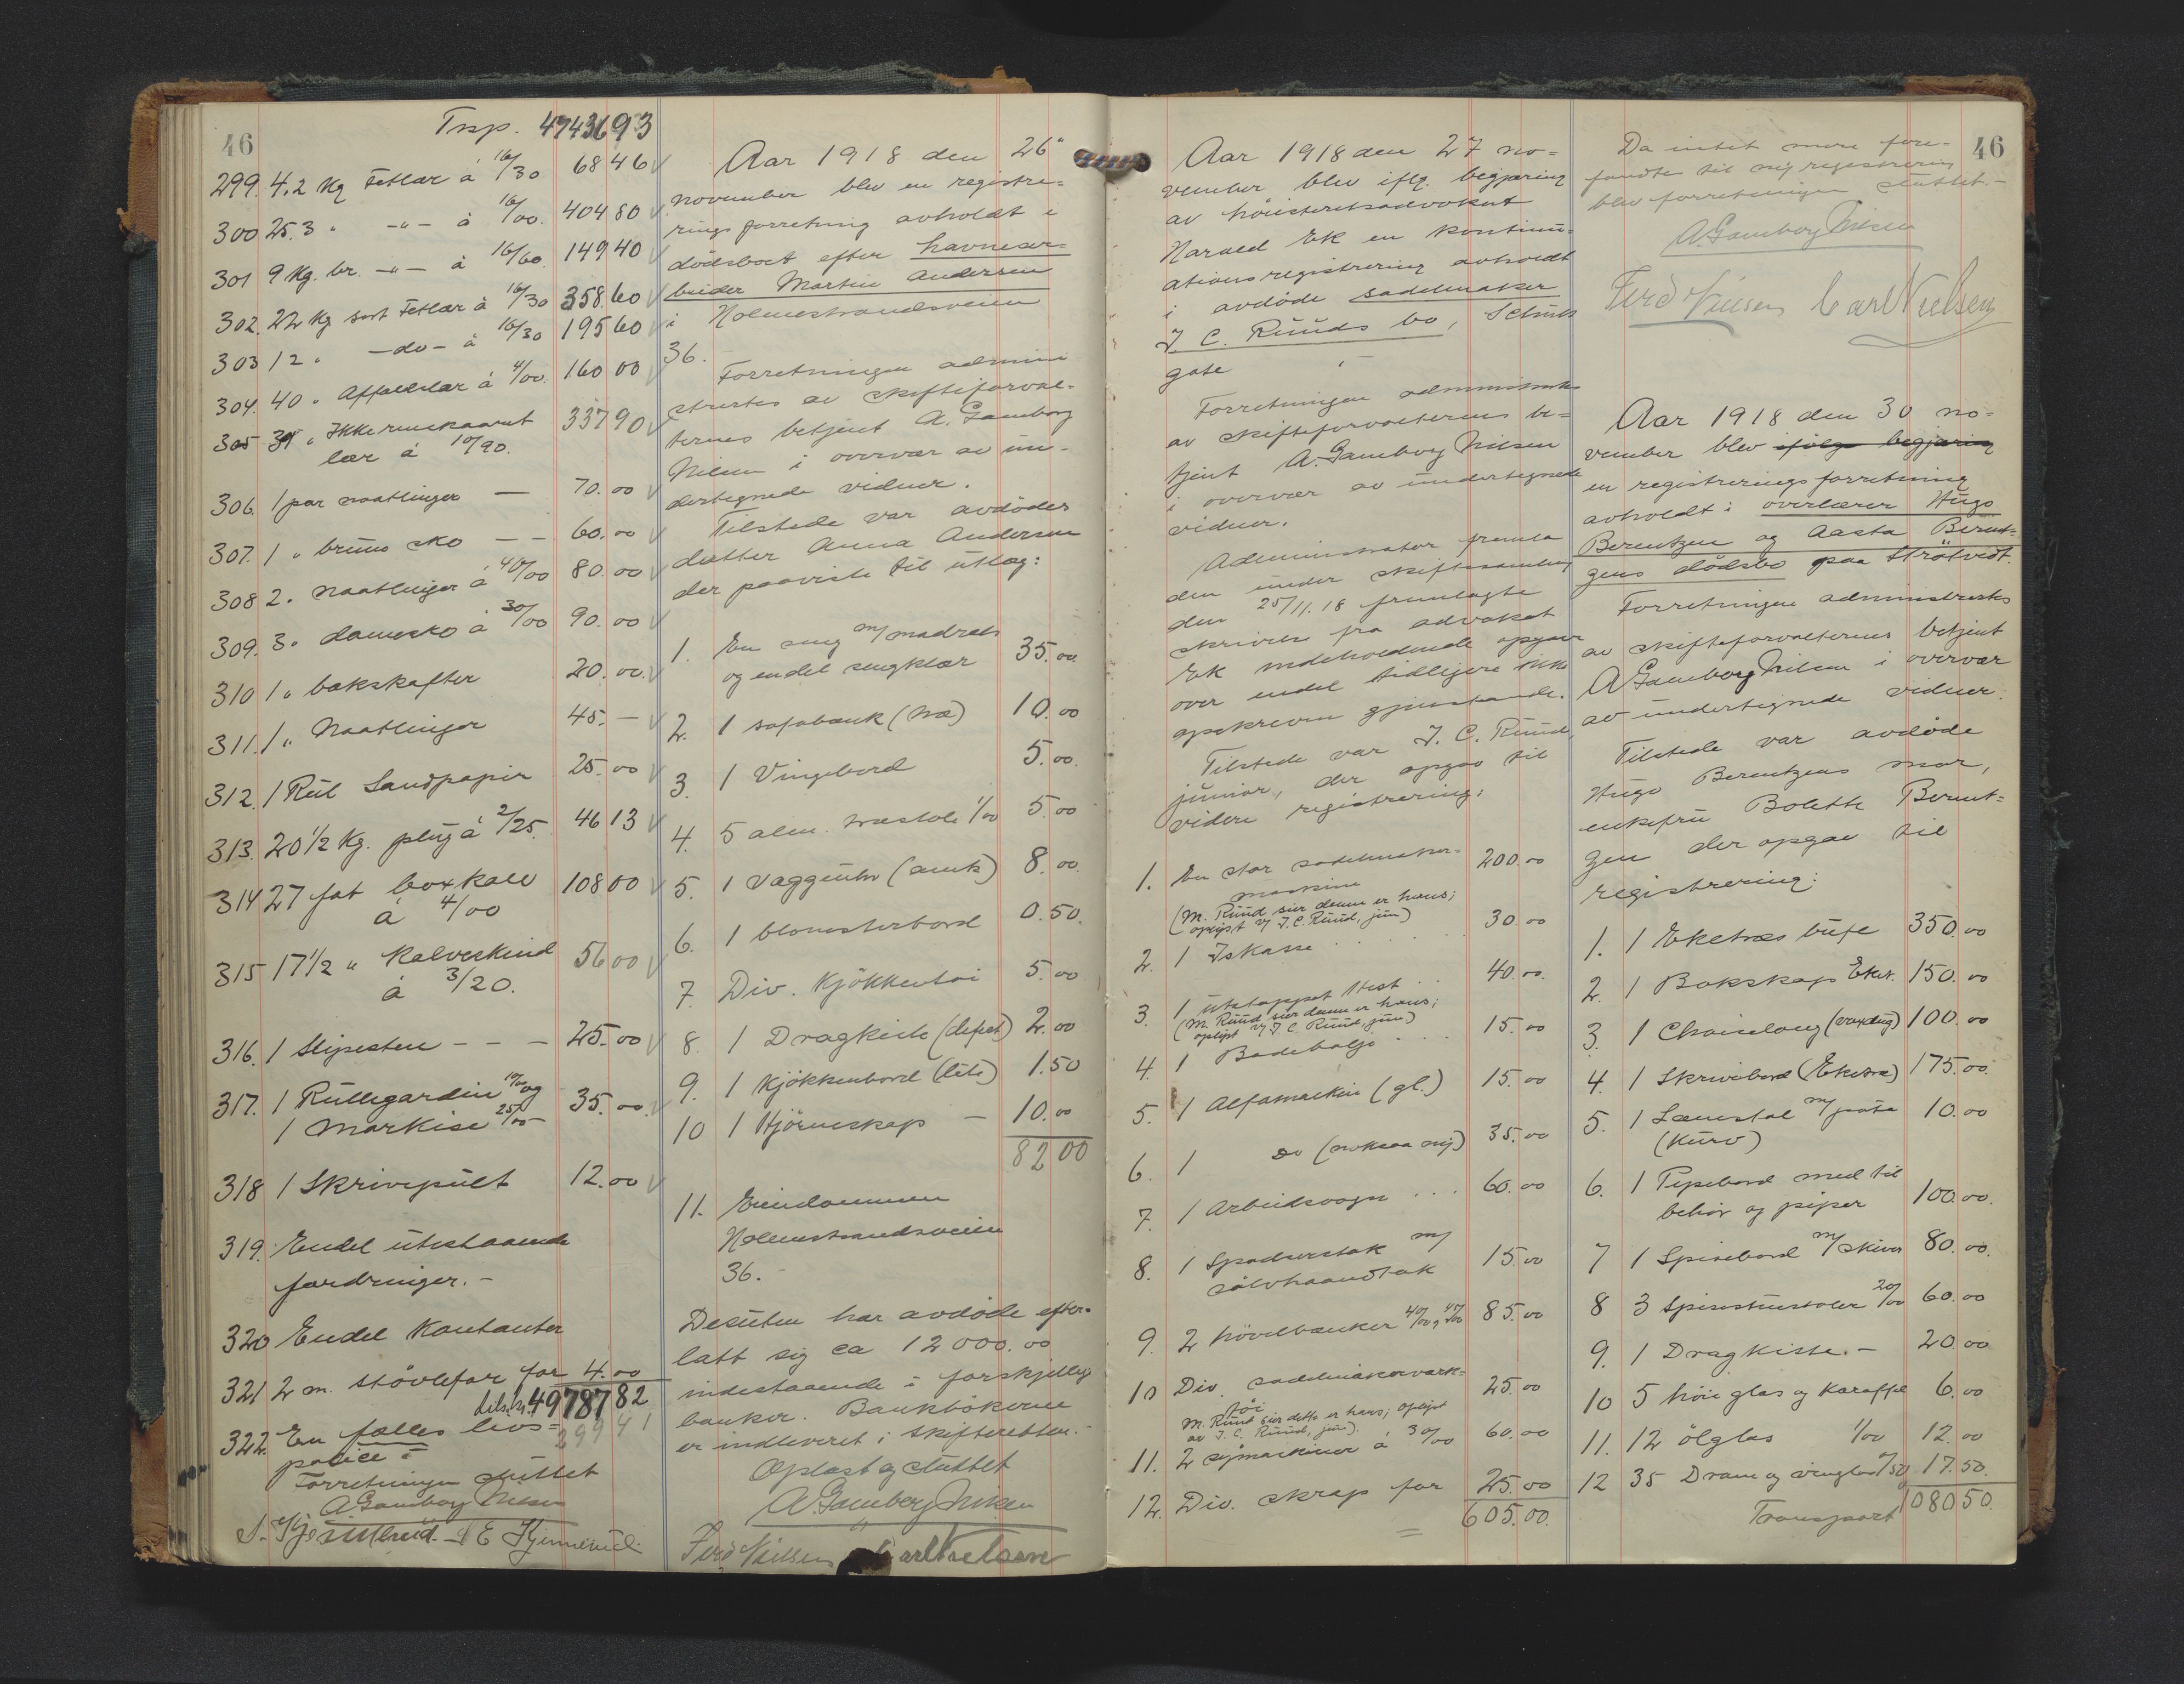 46
Trsp. 4743693
299. 4,2 Kg Fetlær á 16/30 68 46
300 25.3 " -"- á 16/00. 404 80
301 9 Kg. br. -"- á 16/60. 149 40
302. 22 Kg sort Fetlær á 16/30 358.60
303 12 " -do- á 16/30 195 60
304. 40 " Affaldslær á 4/00. 160 00
305 31 " Ikke
lær á 10/90. 337 90
306. 1 par naatlinger — 70.00
307. 1 " bruns sko - - 60.00
308 2 " naatlinger á 40/00 80.00
309. 3 " damesko á 30/00 90.00
310 1 " bakskafter 20.00
311. 1 " Naatlinger 45. —
312. 1 Rul Sandpapir 25.00
313. 20 1/2 Kg. pløg á 2/25. 46 13
314 27 fot boxkalv 108 00
á 4/00
315 17 1/2 " Kalveskind 56 00
á 3/20.
316. 1 Slipesten - - - 25.00
317. 1 Rullegardin 10/00 og
1 Markise 25/00 35.00
318 1 Skrivepult 12.00
319. Endel utestaaende
fordringer. -
320 Endel Kontanter
321 2 m. støvlefor for 4.00
tils. kr. 4978782
29941
322. En fælles livs=
police -
Forretningen sluttet
A. Gamborg Nilsen
Aar 1918 den 26"
november blev en registre=
rings forretning avholdt i
dødsboet efter havnear=
beider Martin Andersen
i Holmestrandsveien
36.
Forretningen admini
strertes av skifteforval-
terens betjent A. Gamborg
Nilsen i overvær av un-
dertegnede vidner.
Tilstede var avdødes
datter Anna Andersen
der paaviste til utlæg:
1. En seng m/ madrats
og endel sengklær 35.00
2. 1 sofabænk (træ) 10.00
3. 1 Vingebord 5.00
4. 5 alm. træstole 1/00 5.00
5. 1 Vægguhr (amrk) 8.00
6. 1 blomsterbord 0.50.
7. Div. Kjøkkentøi 5.00
8. 1 Dragkiste (defect) 2.00
9. 1 Kjøkkenbord (lite) 1.50
10 1 Hjørneskap - 10.00
82 00
11. Eiendommen
Holmestrandsveien
36. -
Desuten har avdøde efter-
latt sig ca 12000.00
indestaaende i forskjellige
banker. Bankbøkerne
er indleveret i skifteretten. -
Oplæst og sluttet
A. Gamborg Nilsen
Ferd Nielsen Carl Nielsen
Aar 1918 den 27 no=
vember blev iflg. begjæring
av høiesteretsadvokat
Harald Ek en kontinu=
ationsregistrering avholdt
i avdøde sadelmaker
J. C. Ruuds bo, Schults
gate
Forretningen administrertes
av skifteforvalterens be=
tjent A. Gamborg Nilsen
i overvær av undertegnede
vidner.
Administrator fremla
den under skiftesamling
den 25/11.18 fremlagte
skrivelse fra advokat
Ek indeholdende opgave
over endel tidligere ikke
opskrevne gjenstande.
Tilstede var J. C. Ruud,
junior, der opgav til
videre registrering:
1. En stor sadelmaker-
maskine 200.00
(M. Ruud sier denne er hans;
oplyst av J. C. Ruud, jun)
2. 1 Iskasse . . . . 30.00
3. 1 utstoppet Hest . . 40.00
(M. Ruud sier denne er hans;
oplyst av J. C. Ruud, jun)
4. 1 Badebalje . . . . 15.00
5. 1 Alfamaskin (gl.) 15.00
6. 1 Do (noksaa ny) 35.00
7. 1 Arbeidsvogn . . . 60.00
8. 1 Spadserstok m/
sølvhaandtak 15.00
9. 2 høvelbænker 40/00 og 45/00 85.00
10 Div. sadelmakerverk=
tøi 25.00
M. Ruud sier dette er hans; oplyst
av J. C. Ruud, jun).
11. 2 symaskiner á 30/00 60.00
12. Div. skrap for 25.00
605.00.
46
Da intet mere fore-
fandtes til ny registrering
blev forretningen sluttet. -
A. Gamborg Nilsen
Ferd Nielsen Carl Nielsen
Aar 1918 den 30 no=
vember blev ifølge begjæring
en registreringsforretning
avholdt i overlærer Hugo
Berentzen og Aasta Berent=
zens dødsbo paa Strøtvedt.
Forretningen administrertes
av skifteforvalterens betjent
A Gamborg Nilsen i overvær
av undertegnede vidner.
Tilstede var avdøde
Hugo Berentzens mor,
enkefru Bolette Berent=
zen der opgav til
registrering:
1. 1 Eketræs bufe 350.00
2. 1 Bokskap Eket. 150.00
3. 1 Chaiselong (voxdug) 100.00
4. 1 Skrivebord (Eketræ) 175.00.
5. 1 Lænestol m/ pute 10.00
(Kurv)
6. 1 Pipebord med til
behør og piper 100.00.
7 1 Spisebord m/ skiver 80.00.
8 3 Spisestuestoler 20/00 60.00
9. 1 Dragkiste. - 20.00
10 5 høie glas og Karaffel 6.00
11. 12 ølglas 1/00 12.00
12 35 Dram og vinglas 0/50 17.50.
Transport 1080 50.